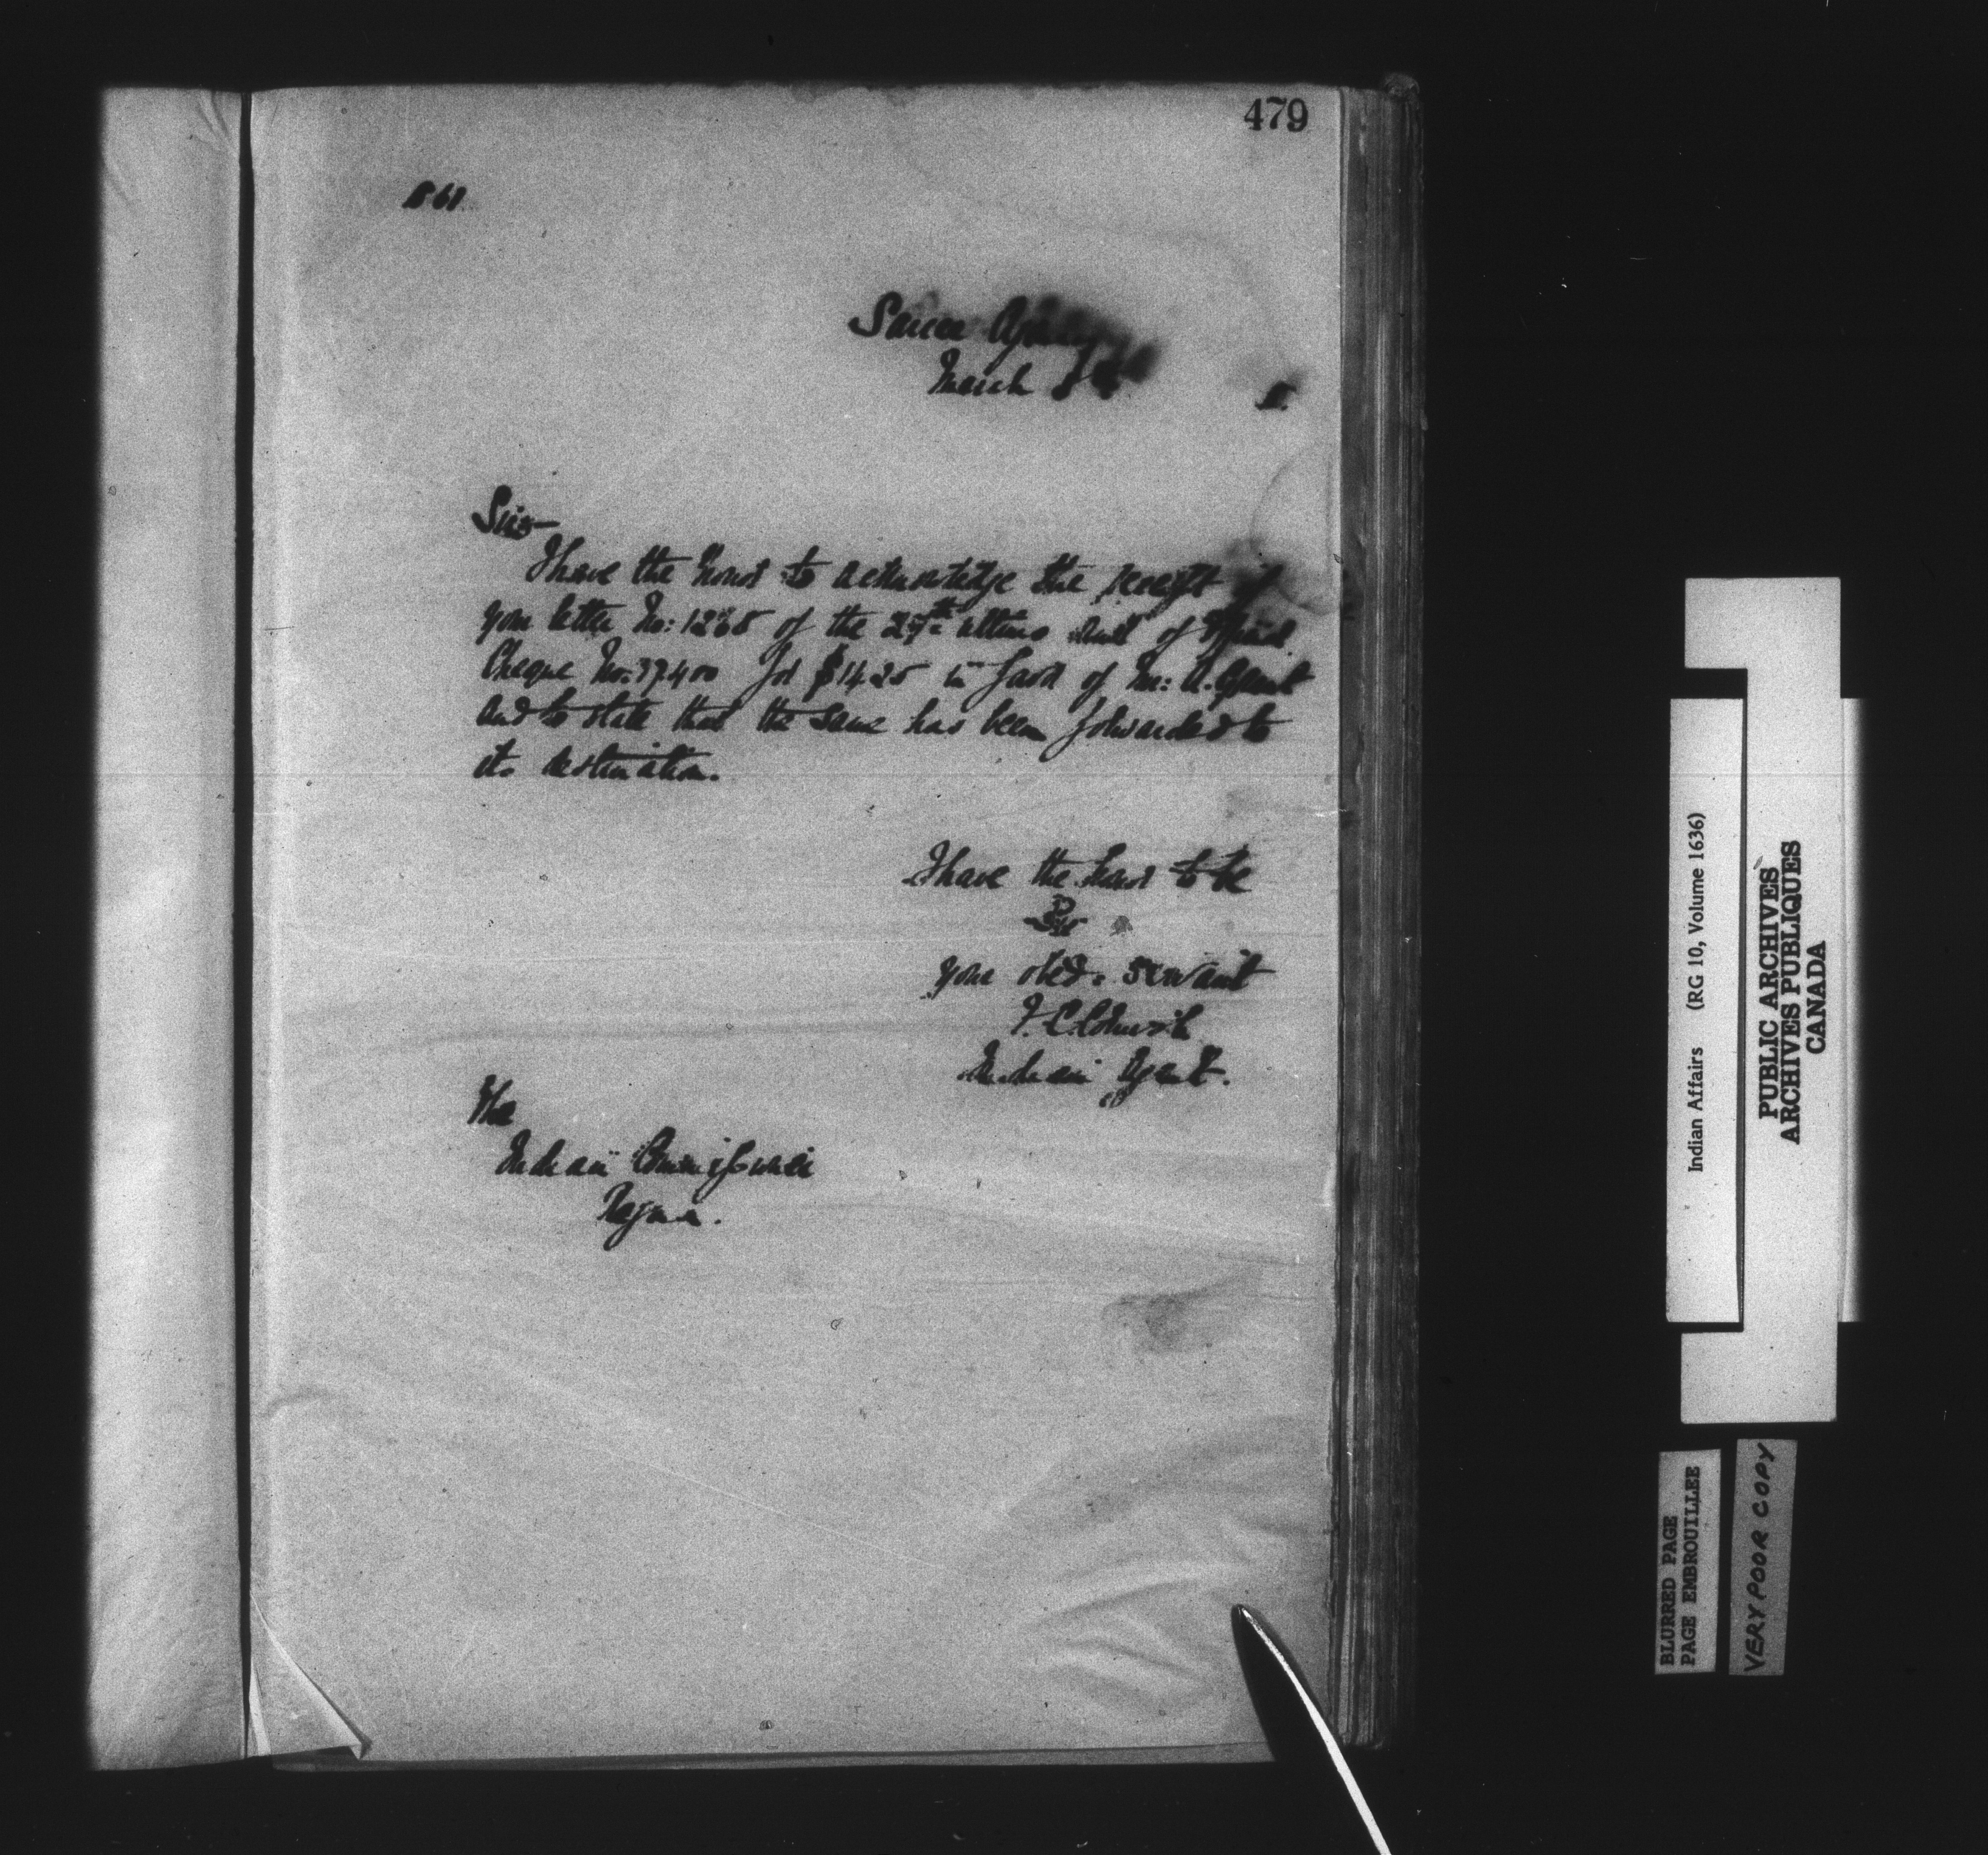 479
Sarcee Agency
March
Sir
I have the honor to acknowledge the receipt of
your letter No: 1268 of the 27th ultimo and of Official
Cheque No: 37400 for $14.25 in favor of Mr: A. Grant
and to state that the same has been forwarded to
its destination.
I have the honor to be
Sir
your obed. servant
Indian Agent.
The
Indian Commissioner
Regina.
Indian Affairs (RG 10, Volume 1636)
PUBLIC ARCHIVES
ARCHIVES PUBLIQUES
CANADA
BLURRED PAGE
PAGE EMBROUILLEE
VERY POOR COPY